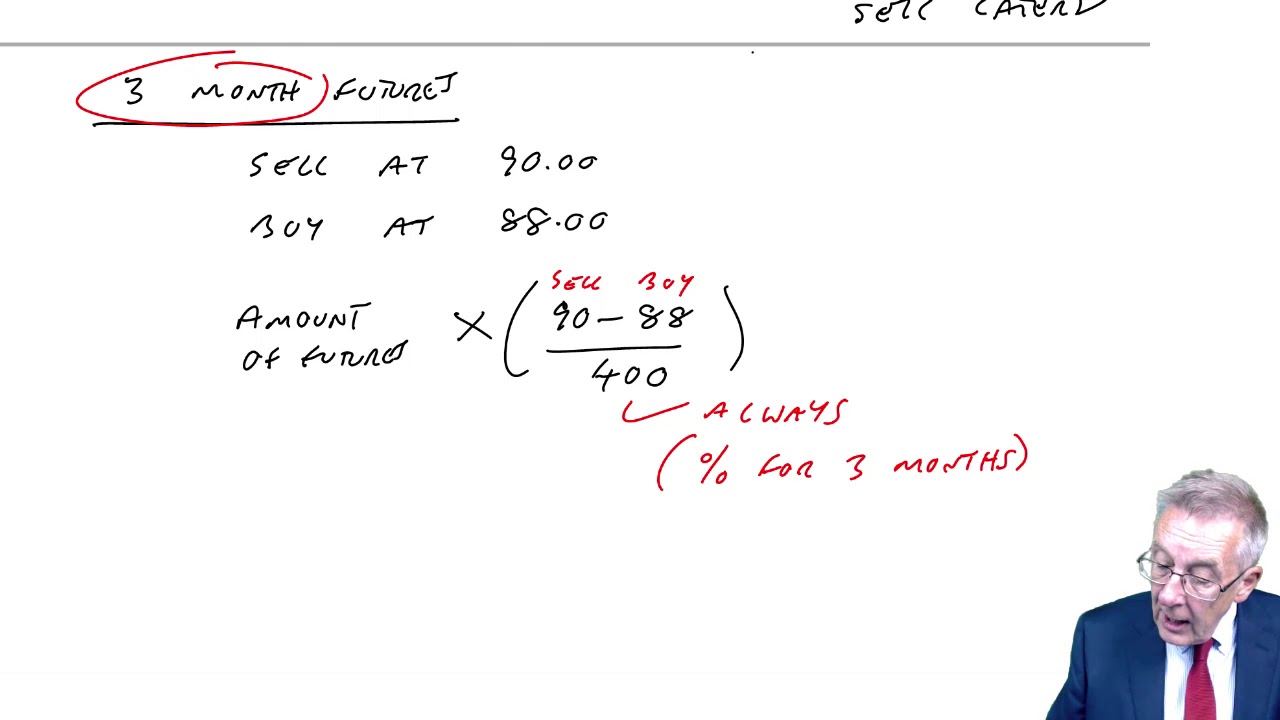 SELL LATER)
3 MONTH FUTURES
SELL AT 90.00
BUY AT 88.00
SELL BUY
AMOUNT OF FUTURES × ( 90 - 88 / 400 )
✓ ALWAYS
(% FOR 3 MONTHS)